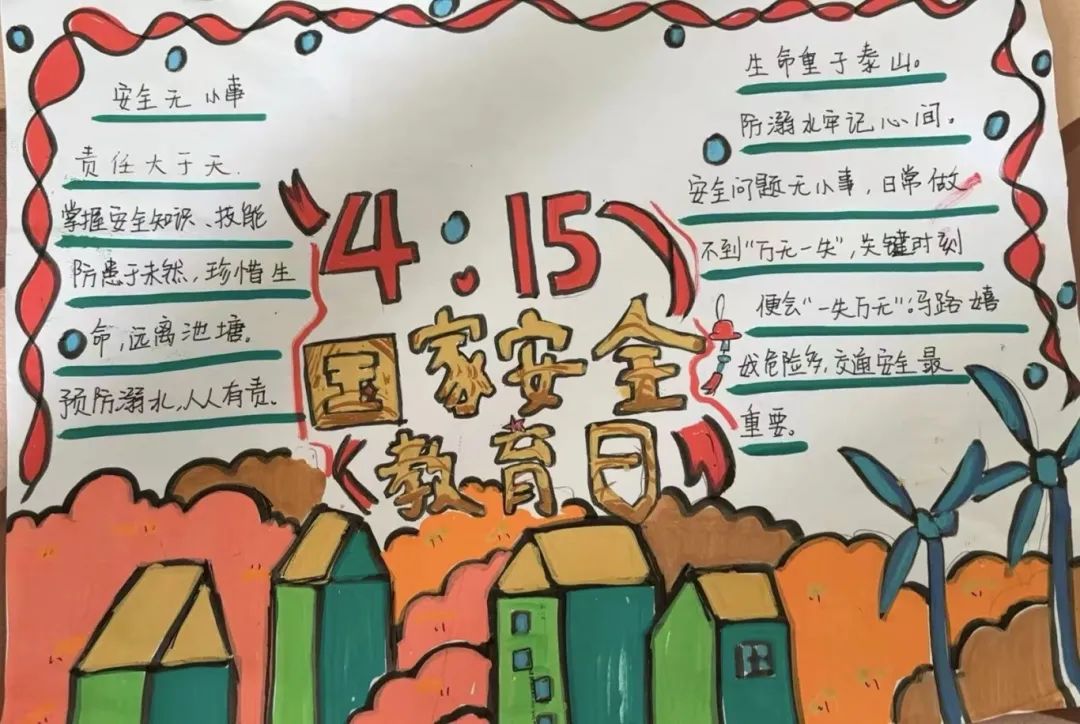 安全无小事
责任大于天.
掌握安全知识、技能
防患于未然，珍惜生
命，远离池塘。
预防溺水，人人有责.
4·15
国家安全
教育日
生命重于泰山。
防溺水牢记心间。
安全问题无小事，日常做
不到“万无一失”，关键时刻
便会“一失万无”。马路嬉
戏危险多，交通安全最
重要。